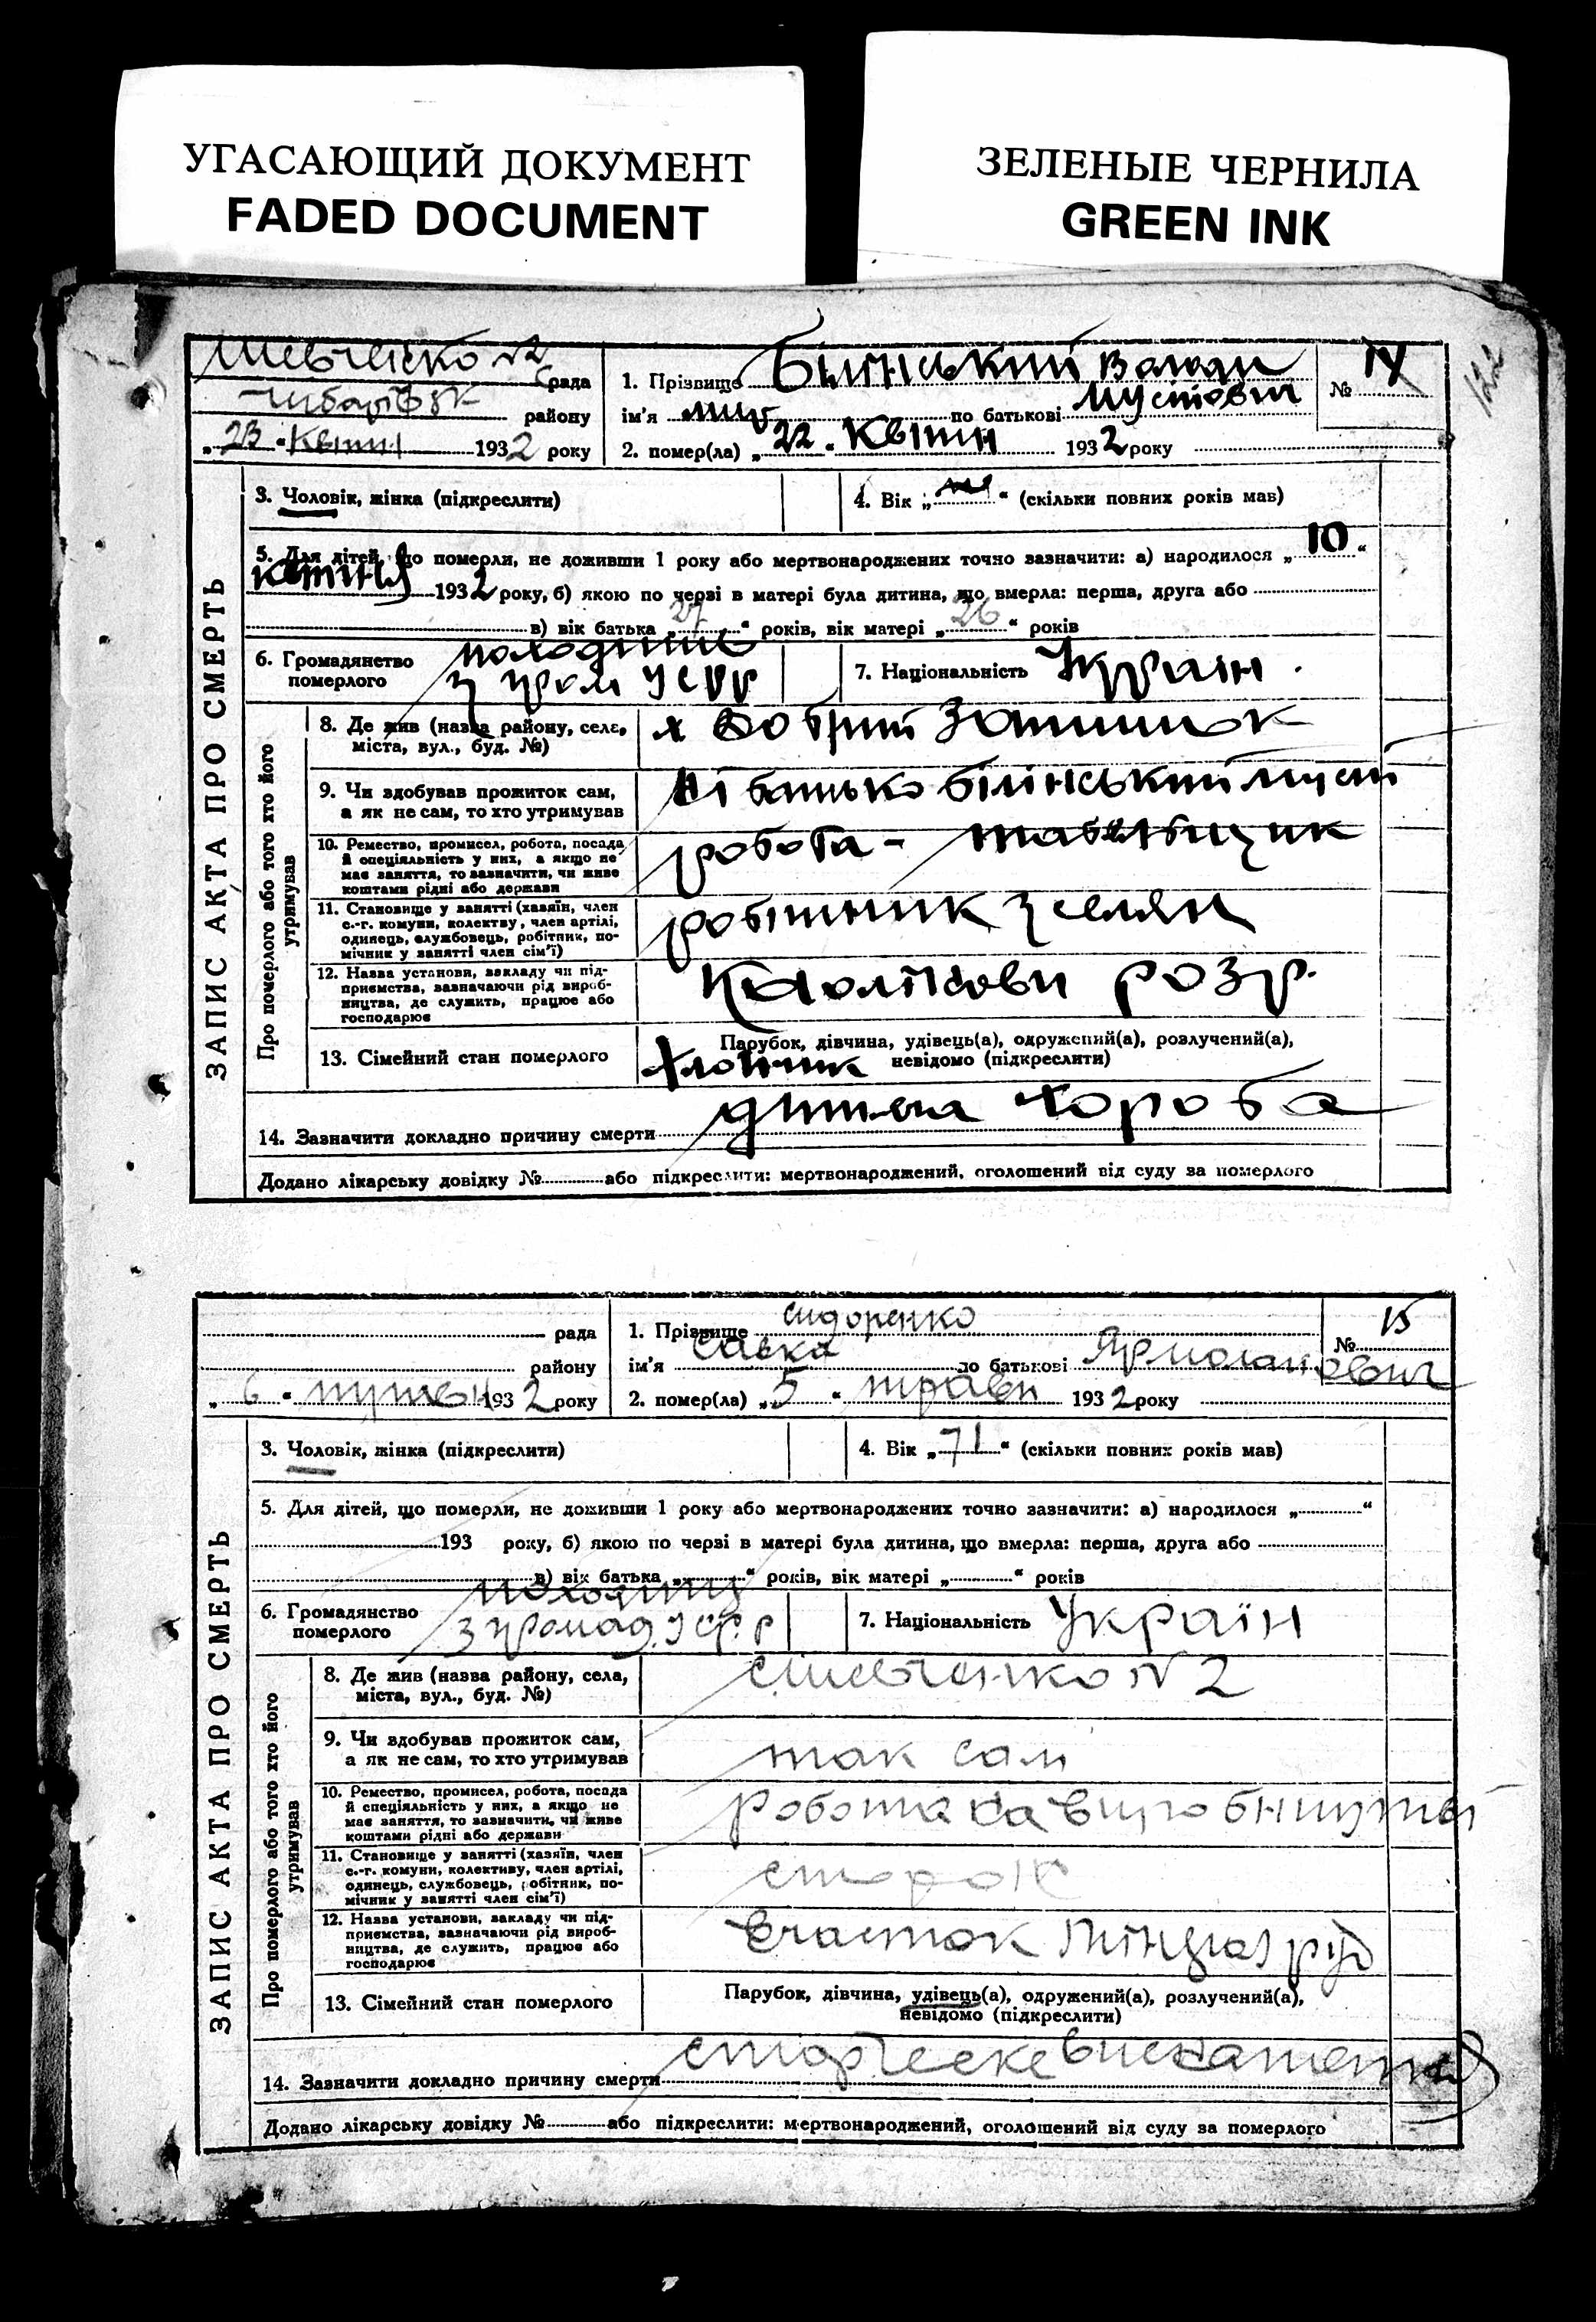 УГАСАЮЩИЙ ДОКУМЕНТ
FADED DOCUMENT
ЗЕЛЕНЫЕ ЧЕРНИЛА
GREEN INK
ЗАПИС АКТА ПРО СМЕРТЬ
Шевченко №2 рада
району
„23“ Квітн 1932 року
1. Прізвище Білінський Володи
мир
ім'я по батькові Мустовіч
№ 14
2. помер(ла) „22“ Квітн 1932 року
3. Чоловік, жінка (підкреслити)
4. Вік „ “ (скільки повних років мав)
5. Для дітей, що померли, не доживши 1 року або мертвонароджених точно зазначити: а) народилося „10“
квітня 1932 року, б) якою по черзі в матері була дитина, що вмерла: перша, друга або
в) вік батька „27“ років, вік матері „26“ років
6. Громадянетво померлого походить з гром УСРР
7. Національність Украін.
Про померлого або того хто його утримував
8. Де жив (назва району, села, міста, вул., буд. №)
х Добрий
9. Чи здобував прожиток сам, а як не сам, то хто утримував
батько білінський муст
10. Ремество, промисел, робота, посада й спеціяльність у них, а якщо не має заняття, то зазначити, чи живе коштами рідні або держави
робота - табельщик
11. Становище у занятті (хазяїн, член с.-г. комуни, колективу, член артілі, одинець, службовець, робітник, помічник у занятті член сім'ї)
робітник з селян
12. Назва установи, закладу чи підприємства, зазначаючи рід виробництва, де служить, працює або господарює
Каолінови розр.
13. Сімейний стан померлого
Парубок, дівчина, удівець(а), одружений(а), розлучений(а), невідомо (підкреслити)
хлопчик
14. Зазначити докладно причину смерти дитяча хороба
Додано лікарську довідку № або підкреслити: мертвонароджений, оголошений від суду за померлого
ЗАПИС АКТА ПРО СМЕРТЬ
рада
району
„6“ 1932 року
1. Прізвище Сидоренко
ім'я Савка по батькові Ярмолаиович
№ 15
2. помер(ла) „5“ травн 1932 року
3. Чоловік, жінка (підкреслити)
4. Вік „71“ (скільки повних років мав)
5. Для дітей, що померли, не доживши 1 року або мертвонароджених точно зазначити: а) народилося „ “
193 року, б) якою по черзі в матері була дитина, що вмерла: перша, друга або
в) вік батька „ “ років, вік матері „ “ років
6. Громадянство померлого походить з громад. УСРР
7. Національність Україн
Про померлого або того хто його утримував
8. Де жив (назва району, села, міста, вул., буд. №)
с. Шевченко №2
9. Чи здобував прожиток сам, а як не сам, то хто утримував
так сам
10. Ремество, промисел, робота, посада й спеціяльність у них, а якщо не має заняття, то зазначити, чи живе коштами рідні або держави
робота на виробництві
11. Становище у занятті (хазяїн, член с.-г. комуни, колективу, член артілі, одинець, службовець, робітник, помічник у занятті член сім'ї)
сторож
12. Назва установи, закладу чи підприємства, зазначаючи рід виробництва, де служить, працює або господарює
Вчасток
13. Сімейний стан померлого
Парубок, дівчина, удівець(а), одружений(а), розлучений(а), невідомо (підкреслити)
14. Зазначити докладно причину смерти старческе
Додано лікарську довідку № або підкреслити: мертвонароджений, оголошений від суду за померлого